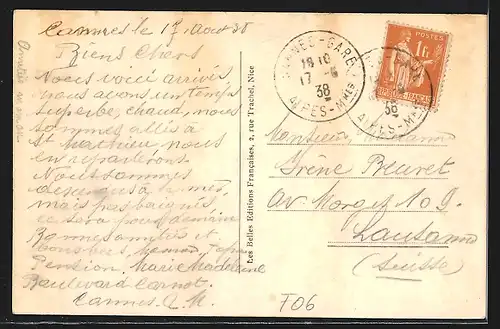 Cannes le 17 Aout 38
Biens Chers
Nous voici arrivés,
nous avons un temps
superbe, chaud, nous
sommes allés à
St Mathieu, nous
en reparlerons
Nous sommes
à la mer,
mais pas baignés
ce sera pour demain
Bonnes amitiés et
Pension Marie Madeleine
Boulevard Carnot.
Cannes A. M.
Les Belles Editions Françaises, 2, rue Trachel, Nice
CANNES-GARE
18 10
17 -8
38
ALPES-MMES
POSTES
1F
38
ALPES-MMES
Monsieur Madame
Irène Beuret
Av Morges 109.
Lausanne
(Suisse)
F06